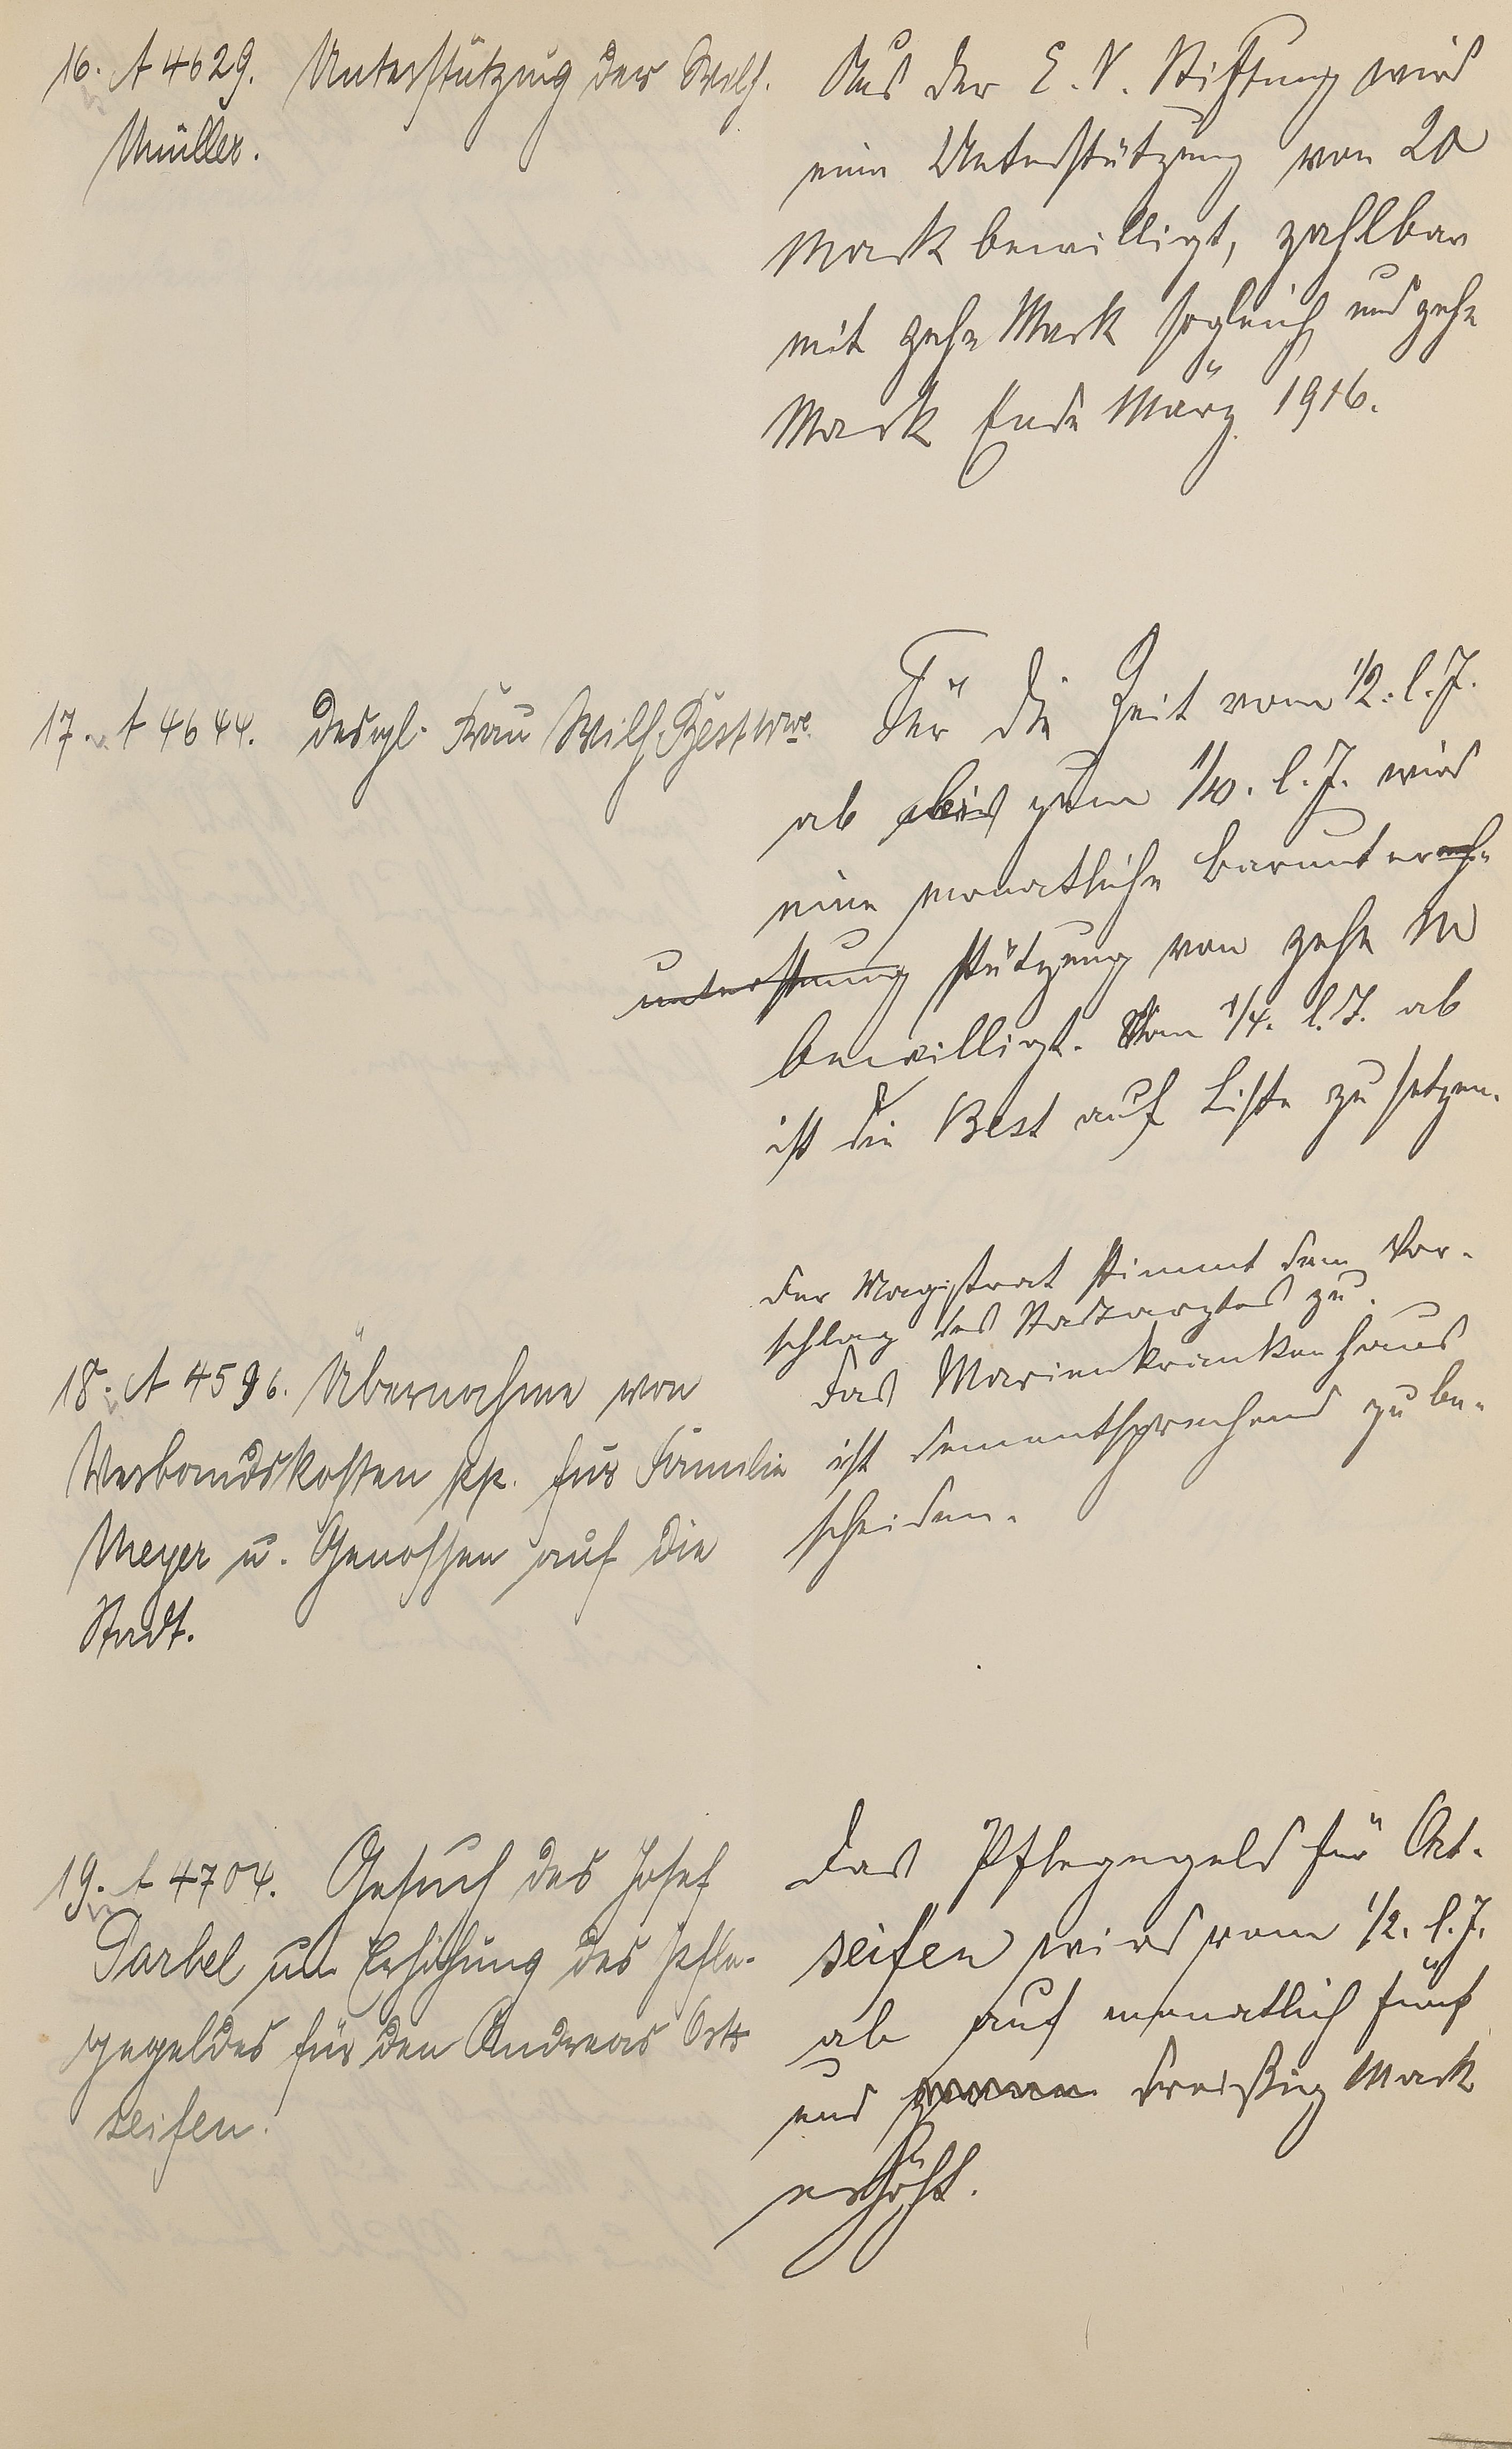 16. A 4629. Unterstützung des Wilh.
Müller.
Aus der E. V. Stiftung wird
eine Unterstützung von 20
Mark bewilligt, zahlbar
mit zehn Mark sogleich und zehn
Mark Ende März 1916.
17. A 4644. Desgl. Frau Wilh. Best Wwe.
Für die Zeit vom 1/2. l. J.
ab bis zum 1/10. l. J. wird
eine monatliche Barunter
stützung von zehn M
bewilligt. Vom 1/4. l. J. ab
ist die Best auf Liste zu setzen.
18. A 4596. Übernahme von
Verbandskosten pp. für Familie
Meyer u. Genossen auf die
Stadt.
Der Magistrat stimmt dem Vor-
schlag des Stadtarztes zu.
Das Marienkrankenhaus
ist dementsprechend zu be-
scheiden.
19. A 4704. Gesuch des Josef
Sarbel um Erhöhung des Pfle-
gegeldes für den Andreas Ort-
seifen.
Das Pflegegeld für Ort-
seifen wird vom 1/2. l. J.
ab auf monatlich fünf
und dreißig Mark
erhöht.